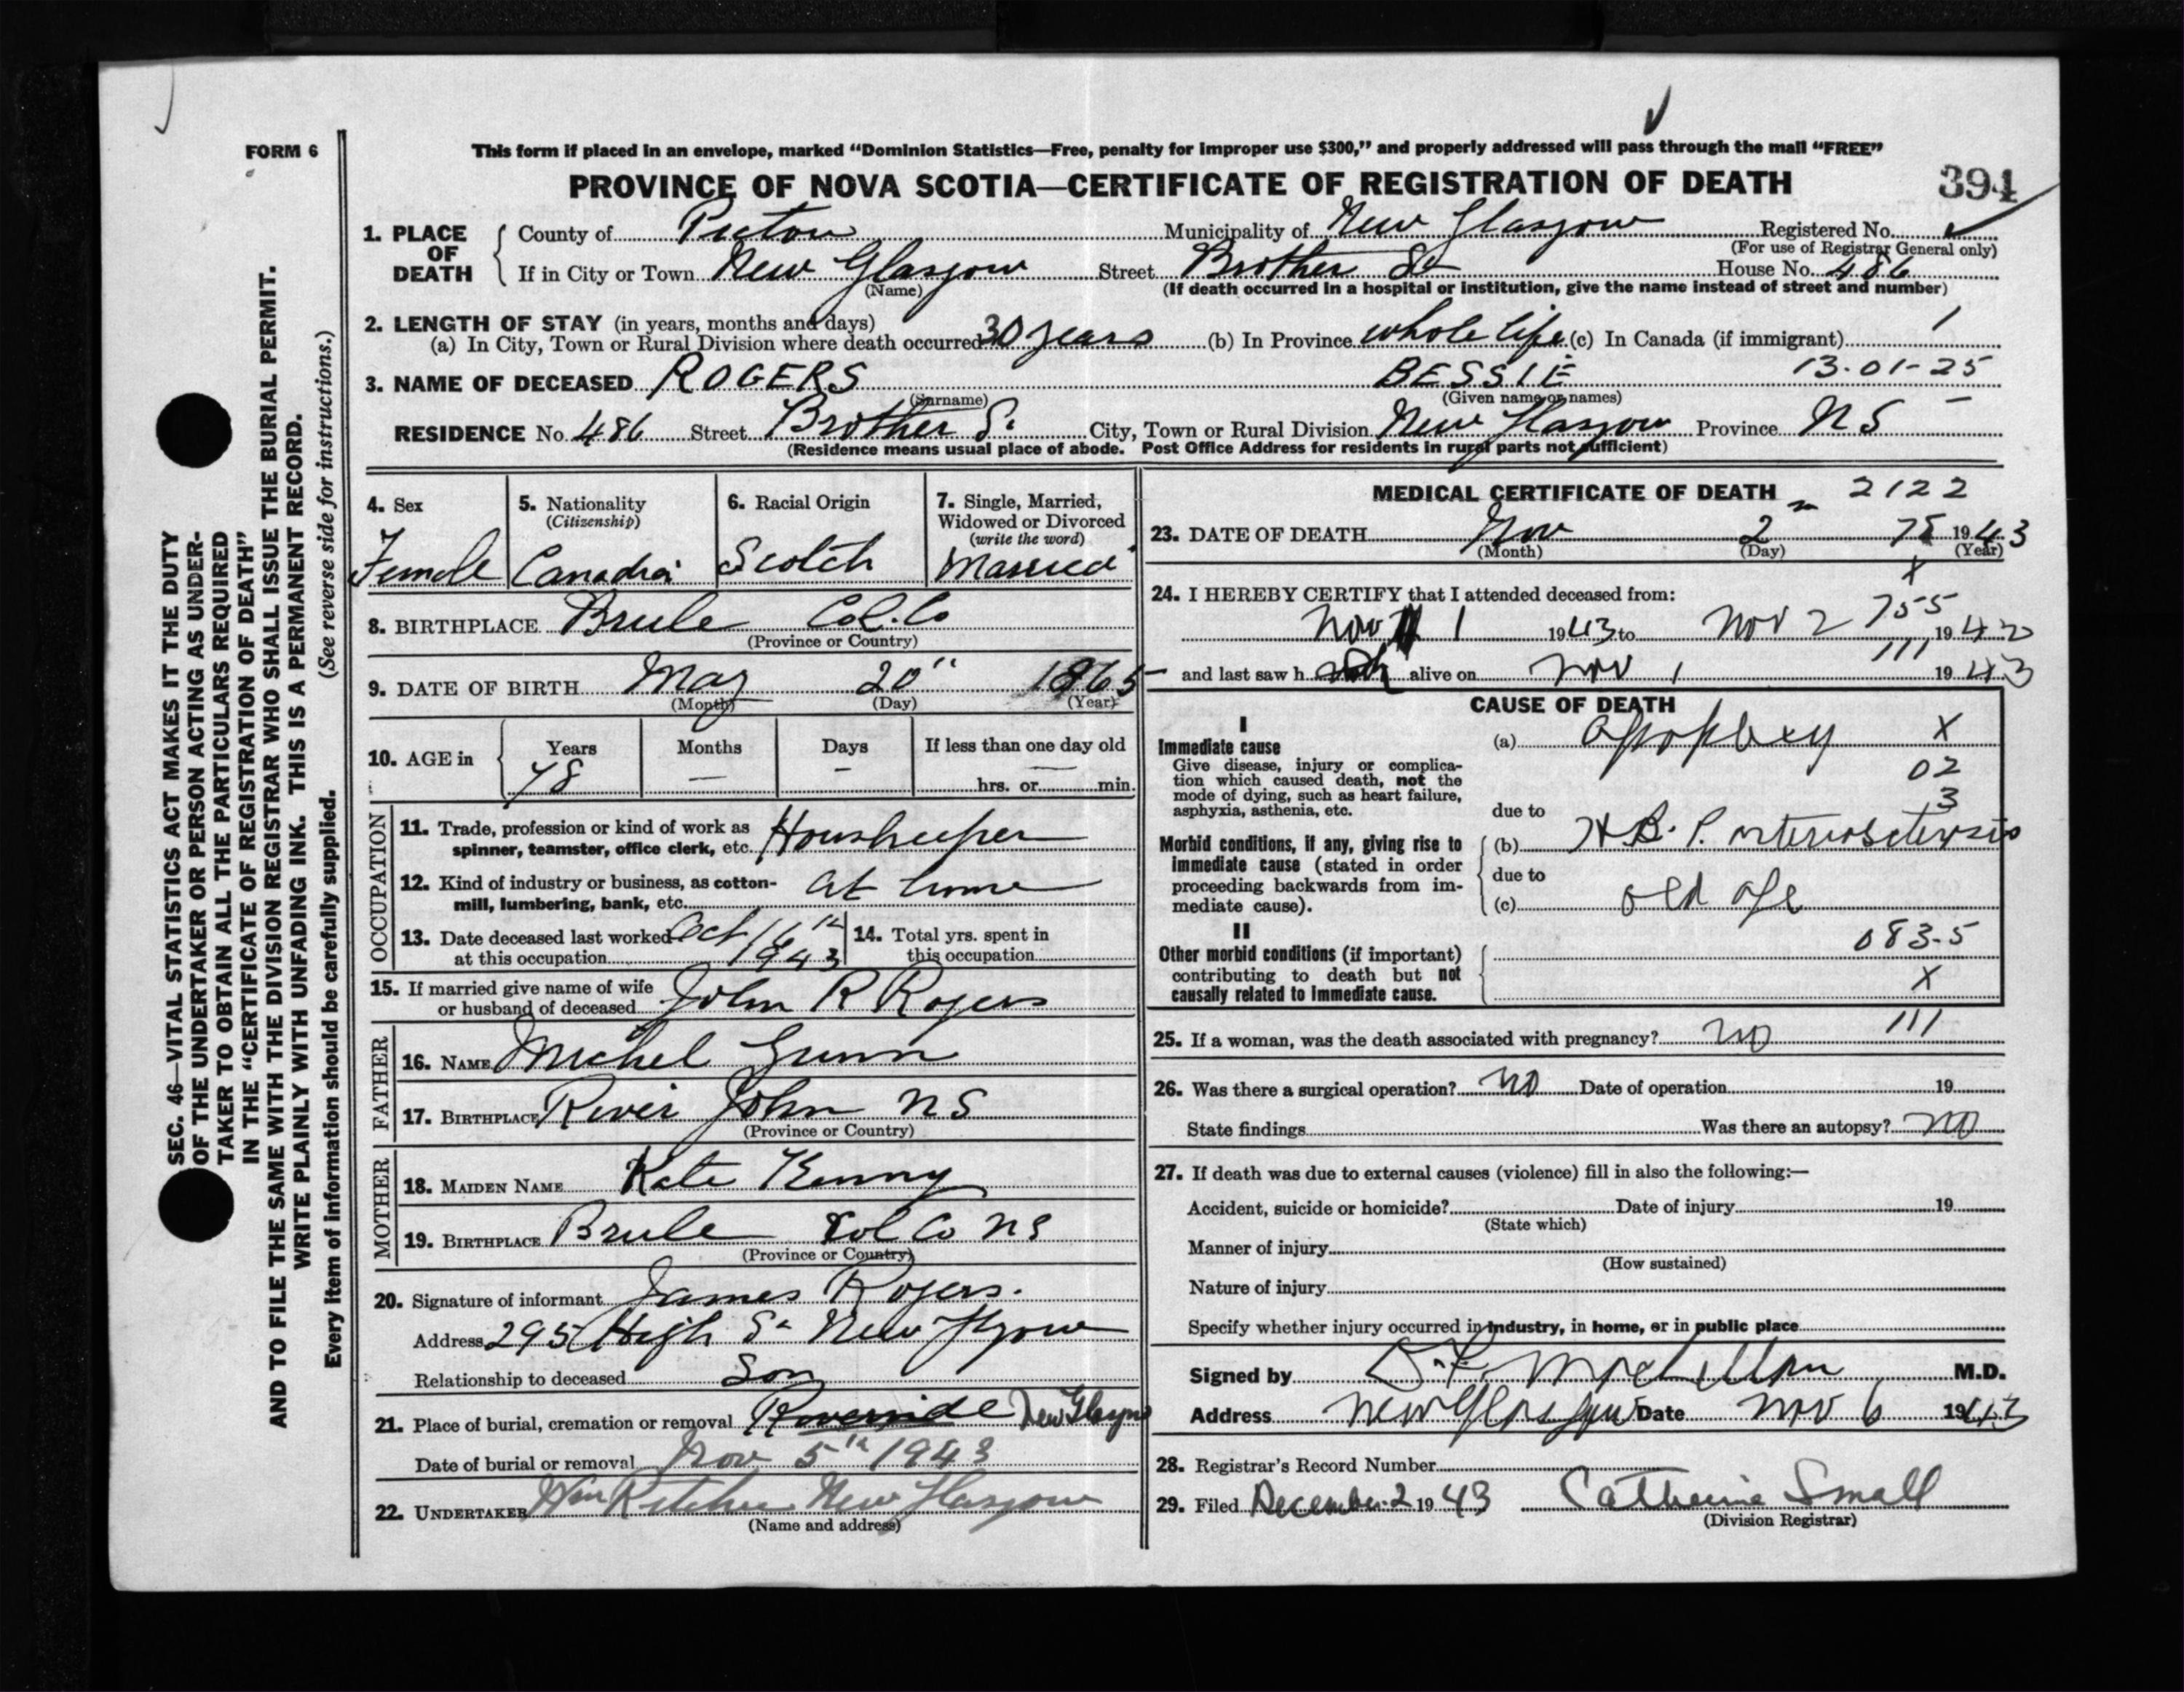 FORM 6
This form if placed in an envelope, marked “Dominion Statistics—Free, penalty for improper use $300,” and properly addressed will pass through the mail “FREE”
PROVINCE OF NOVA SCOTIA—CERTIFICATE OF REGISTRATION OF DEATH
394
1. PLACE OF DEATH
County of Pictou Municipality of New Glasgow Registered No.
(For use of Registrar General only)
If in City or Town New Glasgow Street Brother St House No. 486
(Name) (If death occurred in a hospital or institution, give the name instead of street and number)
2. LENGTH OF STAY (in years, months and days)
(a) In City, Town or Rural Division where death occurred 30 years (b) In Province whole life (c) In Canada (if immigrant)
3. NAME OF DECEASED ROGERS BESSIE 13-01-25
(Surname) (Given name or names)
RESIDENCE No. 486 Street Brother St City, Town or Rural Division New Glasgow Province N S
(Residence means usual place of abode. Post Office Address for residents in rural parts not sufficient)
4. Sex
Female
5. Nationality
(Citizenship)
Canadia
6. Racial Origin
Scotch
7. Single, Married,
Widowed or Divorced
(write the word)
Married
8. BIRTHPLACE Brule Col. Co
(Province or Country)
9. DATE OF BIRTH May 20" 1865
(Month) (Day) (Year)
10. AGE in
Years Months Days If less than one day old
78 — — —
hrs. or min.
OCCUPATION
11. Trade, profession or kind of work as
spinner, teamster, office clerk, etc. Housekeeper
12. Kind of industry or business, as cotton-
mill, lumbering, bank, etc. at home
13. Date deceased last worked
at this occupation Oct 16th 1943
14. Total yrs. spent in
this occupation
15. If married give name of wife
or husband of deceased John R Rogers
FATHER
16. NAME Michel Gunn
17. BIRTHPLACE River John N S
(Province or Country)
MOTHER
18. MAIDEN NAME Kate Kenny
19. BIRTHPLACE Brule Col Co N S
(Province or Country)
20. Signature of informant James Rogers.
Address 295 High St New Glasgow
Relationship to deceased Son
21. Place of burial, cremation or removal Riverside New Glasgow
Date of burial or removal Nov 5th 1943
22. UNDERTAKER Wm Ritchie New Glasgow
(Name and address)
MEDICAL CERTIFICATE OF DEATH 2122
23. DATE OF DEATH Nov 2 78 1943
(Month) (Day) (Year)
X
24. I HEREBY CERTIFY that I attended deceased from:
Nov 1 1943 to Nov 2 755 1943
111
and last saw h alive on Nov 1 1943
CAUSE OF DEATH
I
Immediate cause
Give disease, injury or complica-
tion which caused death, not the
mode of dying, such as heart failure,
asphyxia, asthenia, etc.
(a) apoplexy X
02
3
due to
Morbid conditions, if any, giving rise to
immediate cause (stated in order
proceeding backwards from im-
mediate cause).
(b) H.B.P. arteriosclerosis
due to
(c) old age
II
Other morbid conditions (if important)
contributing to death but not
causally related to immediate cause.
083-5
X
111
25. If a woman, was the death associated with pregnancy? no
26. Was there a surgical operation? no Date of operation 19
State findings Was there an autopsy? no
27. If death was due to external causes (violence) fill in also the following:—
Accident, suicide or homicide? Date of injury 19
(State which)
Manner of injury
(How sustained)
Nature of injury
Specify whether injury occurred in industry, in home, or in public place
Signed by M.D.
Address New Glasgow Date Nov 6 1943
28. Registrar's Record Number
29. Filed December 2 1943 Catherine Small
(Division Registrar)
SEC. 46—VITAL STATISTICS ACT MAKES IT THE DUTY
OF THE UNDERTAKER OR PERSON ACTING AS UNDER-
TAKER TO OBTAIN ALL THE PARTICULARS REQUIRED
IN THE “CERTIFICATE OF REGISTRATION OF DEATH”
AND TO FILE THE SAME WITH THE DIVISION REGISTRAR WHO SHALL ISSUE THE BURIAL PERMIT.
WRITE PLAINLY WITH UNFADING INK. THIS IS A PERMANENT RECORD.
Every item of information should be carefully supplied. (See reverse side for instructions.)